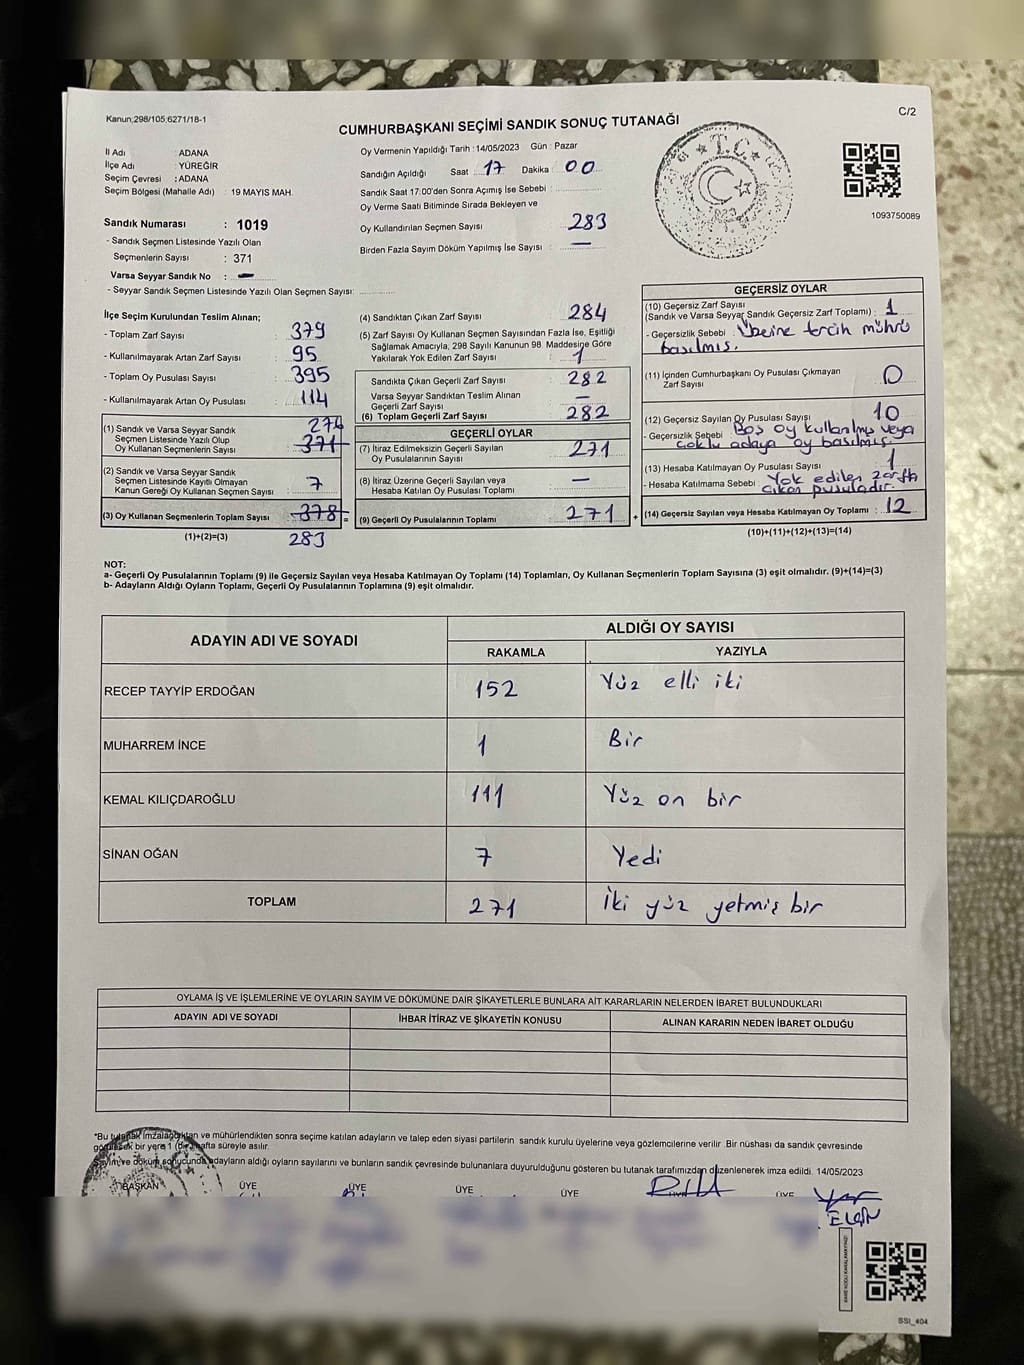 Kanun;298/105,6271/18-1
C/2
CUMHURBAŞKANI SEÇİMİ SANDIK SONUÇ TUTANAĞI
İl Adı : ADANA
İlçe Adı : YÜREĞİR
Seçim Çevresi : ADANA
Seçim Bölgesi (Mahalle Adı) : 19 MAYIS MAH.
Sandık Numarası : 1019
- Sandık Seçmen Listesinde Yazılı Olan
Seçmenlerin Sayısı : 371
Varsa Seyyar Sandık No : —
- Seyyar Sandık Seçmen Listesinde Yazılı Olan Seçmen Sayısı:
Oy Vermenin Yapıldığı Tarih : 14/05/2023 Gün : Pazar
Sandığın Açıldığı Saat 17 Dakika 00
Sandık Saat 17:00'den Sonra Açımış İse Sebebi :
Oy Verme Saati Bitiminde Sırada Bekleyen ve
Oy Kullandırılan Seçmen Sayısı : 283
Birden Fazla Sayım Döküm Yapılmış İse Sayısı : —
T.C.
1093750089
İlçe Seçim Kurulundan Teslim Alınan;
- Toplam Zarf Sayısı : 379
- Kullanılmayarak Artan Zarf Sayısı : 95
- Toplam Oy Pusulası Sayısı : 395
- Kullanılmayarak Artan Oy Pusulası : 114
276
(1) Sandık ve Varsa Seyyar Sandık
Seçmen Listesinde Yazılı Olup
Oy Kullanan Seçmenlerin Sayısı : 371
(2) Sandık ve Varsa Seyyar Sandık
Seçmen Listesinde Kayıtlı Olmayan
Kanun Gereği Oy Kullanan Seçmen Sayısı : 7
(3) Oy Kullanan Seçmenlerin Toplam Sayısı : 378 =
(1)+(2)=(3) 283
(4) Sandıktan Çıkan Zarf Sayısı : 284
(5) Zarf Sayısı Oy Kullanan Seçmen Sayısından Fazla İse, Eşitliği
Sağlamak Amacıyla, 298 Sayılı Kanunun 98. Maddesine Göre
Yakılarak Yok Edilen Zarf Sayısı : 1
Sandıkta Çıkan Geçerli Zarf Sayısı : 282
Varsa Seyyar Sandıktan Teslim Alınan
Geçerli Zarf Sayısı : —
(6) Toplam Geçerli Zarf Sayısı : 282
GEÇERLİ OYLAR
(7) İtiraz Edilmeksizin Geçerli Sayılan
Oy Pusulalarının Sayısı : 271
(8) İtiraz Üzerine Geçerli Sayılan veya
Hesaba Katılan Oy Pusulası Toplamı : —
(9) Geçerli Oy Pusulalarının Toplamı : 271 +
GEÇERSİZ OYLAR
(10) Geçersiz Zarf Sayısı
(Sandık ve Varsa Seyyar Sandık Geçersiz Zarf Toplamı) : 1
- Geçersizlik Sebebi : Üzerine tercih mührü
basılmış.
(11) İçinden Cumhurbaşkanı Oy Pusulası Çıkmayan
Zarf Sayısı : 0
(12) Geçersiz Sayılan Oy Pusulası Sayısı : 10
- Geçersizlik Sebebi : Boş oy kullanılmış veya
çoklu adaya oy basılmış.
(13) Hesaba Katılmayan Oy Pusulası Sayısı : 1
- Hesaba Katılmama Sebebi : Yok edilen zarfta
çıkan pusuladır.
(14) Geçersiz Sayılan veya Hesaba Katılmayan Oy Toplamı : 12
(10)+(11)+(12)+(13)=(14)
NOT:
a- Geçerli Oy Pusulalarının Toplamı (9) ile Geçersiz Sayılan veya Hesaba Katılmayan Oy Toplamı (14) Toplamları, Oy Kullanan Seçmenlerin Toplam Sayısına (3) eşit olmalıdır. (9)+(14)=(3)
b- Adayların Aldığı Oyların Toplamı, Geçerli Oy Pusulalarının Toplamına (9) eşit olmalıdır.
ADAYIN ADI VE SOYADI
ALDIĞI OY SAYISI
RAKAMLA YAZIYLA
RECEP TAYYİP ERDOĞAN 152 Yüz elli iki
MUHARREM İNCE 1 Bir
KEMAL KILIÇDAROĞLU 111 Yüz on bir
SİNAN OĞAN 7 Yedi
TOPLAM 271 İki yüz yetmiş bir
OYLAMA İŞ VE İŞLEMLERİNE VE OYLARIN SAYIM VE DÖKÜMÜNE DAİR ŞİKAYETLERLE BUNLARA AİT KARARLARIN NELERDEN İBARET BULUNDUKLARI
ADAYIN ADI VE SOYADI İHBAR İTİRAZ VE ŞİKAYETİN KONUSU ALINAN KARARIN NEDEN İBARET OLDUĞU
"Bu tutanak imzalandıktan ve mühürlendikten sonra seçime katılan adayların ve talep eden siyasi partilerin sandık kurulu üyelerine veya gözlemcilerine verilir. Bir nüshası da sandık çevresinde
görülecek bir yere 1 (bir) hafta süreyle asılır.
Sayım ve döküm sonucunda adayların aldığı oyların sayılarını ve bunların sandık çevresinde bulunanlara duyurulduğunu gösteren bu tutanak tarafımızdan düzenlenerek imza edildi. 14/05/2023
BAŞKAN ÜYE ÜYE ÜYE ÜYE ÜYE
SSI_404